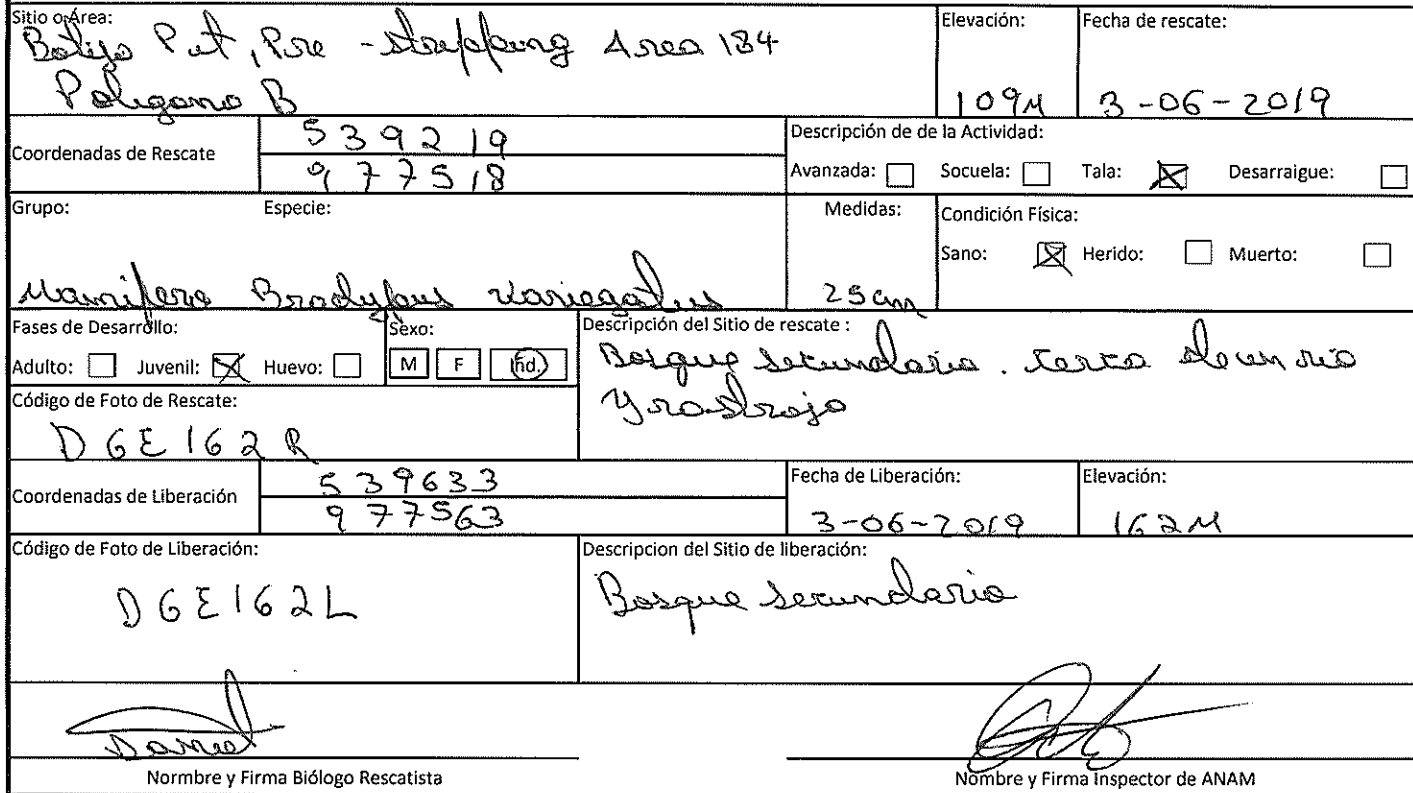 Sitio o Área:
Botija Pit, Pre-stripping Area 184
Poligono B
Elevación:
109M
Fecha de rescate:
3-06-2019
Coordenadas de Rescate
539219
977518
Descripción de de la Actividad:
Avanzada: Socuela: Tala: Desarraigue:
Grupo: Especie:
Mamifero Bradypus variegatus
Medidas:
25cm
Condición Física:
Sano: Herido: Muerto:
Fases de Desarrollo:
Adulto: Juvenil: Huevo:
Sexo:
M F Ind.
Descripción del Sitio de rescate :
Bosque secundario. cerca de un rio
y rastrojo
Código de Foto de Rescate:
DGE162R
Coordenadas de Liberación
539633
977563
Fecha de Liberación:
3-06-2019
Elevación:
162M
Código de Foto de Liberación:
DGE162L
Descripcion del Sitio de liberación:
Bosque secundario
Daniel
Normbre y Firma Biólogo Rescatista
Nombre y Firma Inspector de ANAM